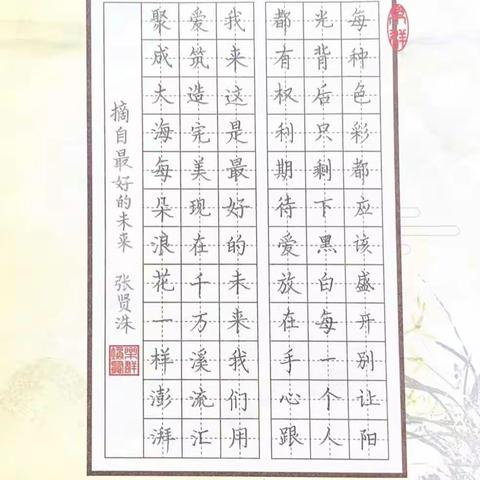 每种色彩都应该盛开别让阳
光背后只剩下黑白每一个人
都有权利期待爱放在手心跟
我来这是最好的未来我们用
爱筑造完美现在千万溪流汇
聚成大海每朵浪花一样澎湃
摘自最好的未来 张贤洙